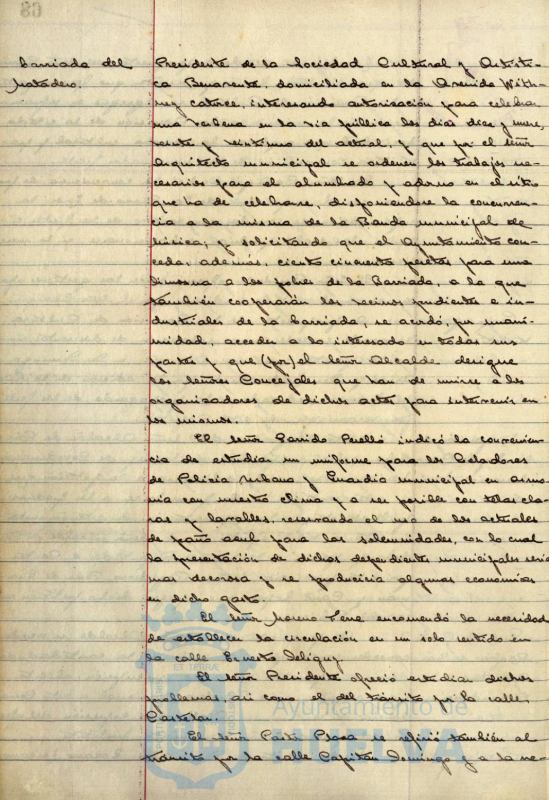 68
barriada del
matadero.
Presidente de la Sociedad Cultural y Artísti-
ca Benavente, domiciliada en la Avenida With-
ney catorce, interesando autorización para celebrar
una verbena en la vía pública los días diez y nueve,
veinte y veintiuno del actual, y que por el señor
Arquitecto municipal se ordenen los trabajos ne-
cesarios para el alumbrado y adorno en el sitio
que ha de celebrarse, disponiéndose la concurren-
cia a la misma de la Banda municipal de
música; y solicitando que el Ayuntamiento con-
ceda, además, ciento cincuenta pesetas para una
limosna a los pobres de la barriada, a la que
también cooperarán los vecinos pudientes e in-
dustriales de la barriada, se acordó, por unani-
midad, acceder a lo interesado en todas sus
partes y que (por) el señor Alcalde designe
los señores Concejales que han de unirse a los
organizadores de dichos actos para intervenir en
los mismos.
El señor Garrido Perelló indicó la convenien-
cia de estudiar un uniforme para los Celadores
de Policía Urbana y Guardia municipal en armo-
nía con nuestro clima y a ser posible con telas cla-
ras y lavables, reservando el uso de los actuales
de paño azul para las solemnidades, con lo cual
la presentación de dichos dependientes municipales sería
mas decorosa y se produciría algunas economías
en dicho gasto.
El señor Moreno encomendó la necesidad
de establecer la circulación en un solo sentido en
la calle Ernesto Deligny
El señor Presidente ofreció estudiar dichos
problemas así como el del tránsito por la calle
Castelar.
El señor Pastor Plaza se refirió también al
tránsito por la calle Capitán Domingo y a la ne-
Ayuntamiento de
HUELVA